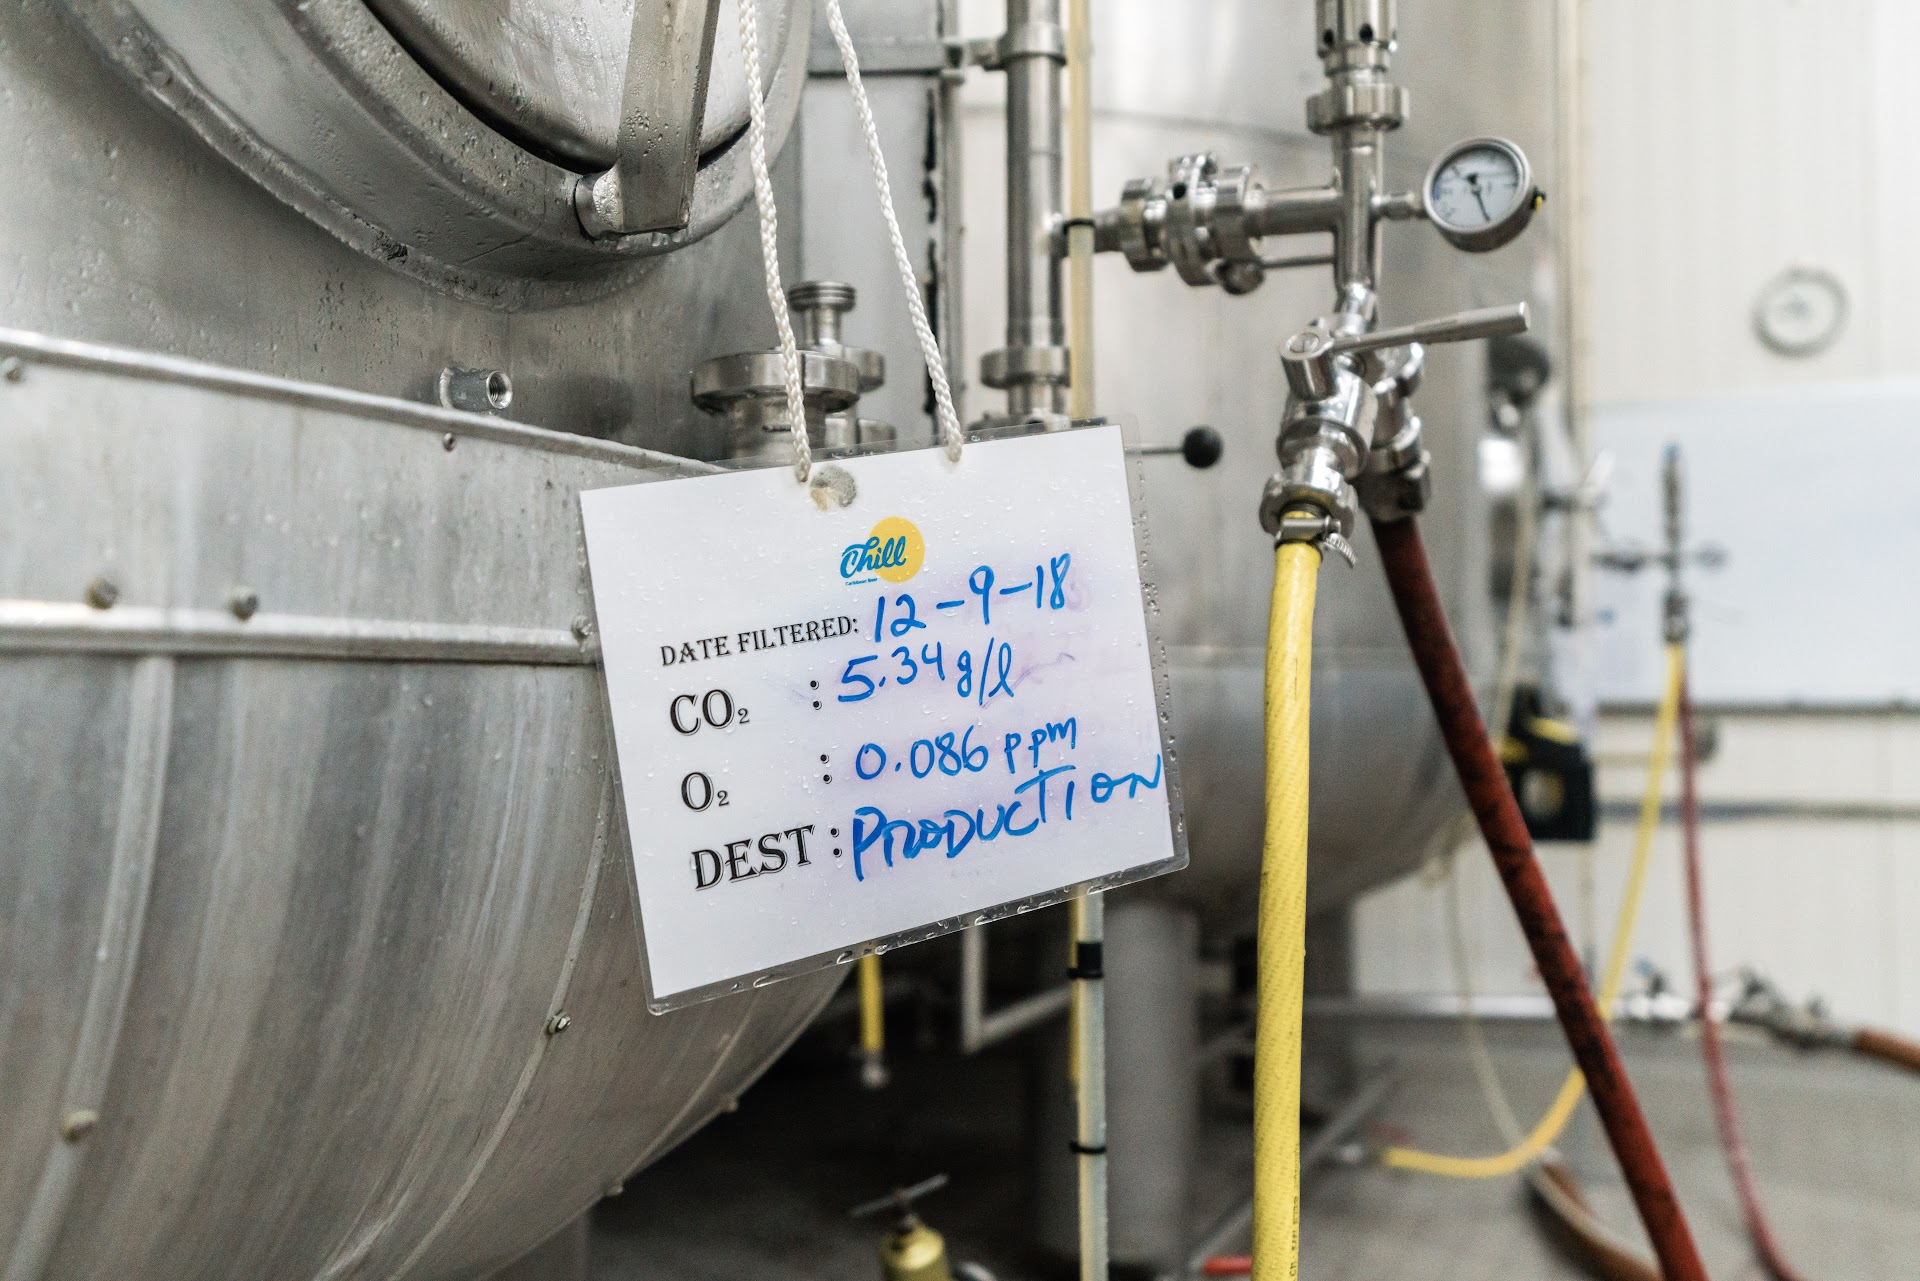 Chill
Caribbean Beer
DATE FILTERED: 12-9-18
CO₂ : 5.34 g/l
O₂ : 0.086 ppm
DEST : PRODUCTION